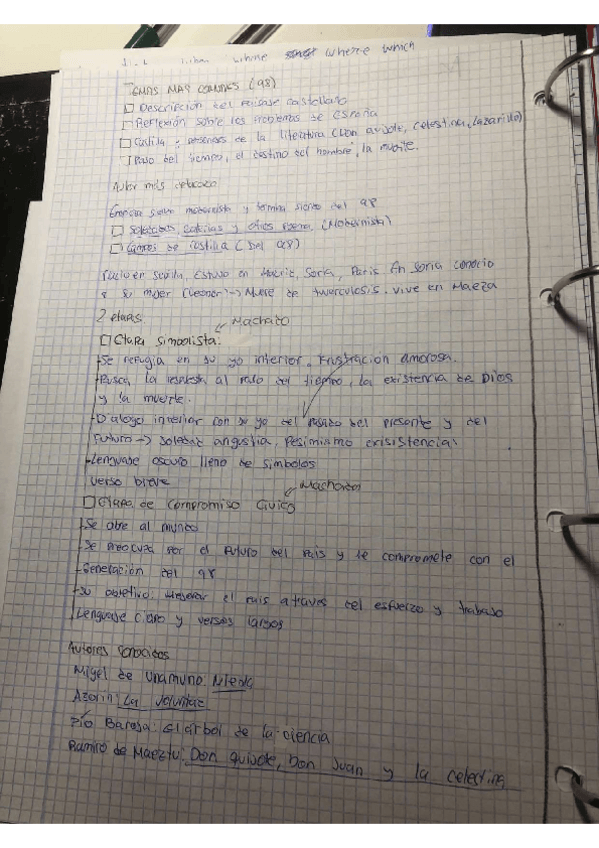 where which
TEMAS MAS COMUNES (98)
Descripción del paisaje castellano
Reflexión sobre los problemas de España
Castilla y personajes de la literatura (Don quijote, Celestina, Lazarillo)
Paso del tiempo, el destino del hombre, la muerte.
Autor más
siendo modernista y termina siendo del 98
Soledades, galerias y otros poemas (Modernista)
Campos de Castilla (Del 98)
Nació en sevilla, Estuvo en Madrid, Soria, Paris. En Soria conoció
a su mujer (Leonor) → Muere de tuverculosis. vive en Baeza
2 etapas:
Machado
Etapa simbolista:
-Se refugia en su yo interior. Frustracion amorosa.
-Busca la respuesta al paso del tiempo, la existencia de Dios
y la muerte.
-Dialogo interior con su yo del pasado del presente y del
Futuro → Soledad angustia, Pesimismo
-Lenguaje oscuro lleno de simbolos
verso breve
Machado
Etapa de compromiso civico
-Se abre al mundo
-Se preocupa por el Futuro del Pais y se compromete con el
-Generación del 98
-Su objetivo: mejorar el pais a traves del esfuerzo y trabajo
Lenguaje claro y versos largos
Autores conocidos
Migel de Unamuno: Niebla
Azorin: La voluntad
Pío Baroja: El árbol de la ciencia
Ramiro de Maeztu: Don quijote, Don Juan y la celestina